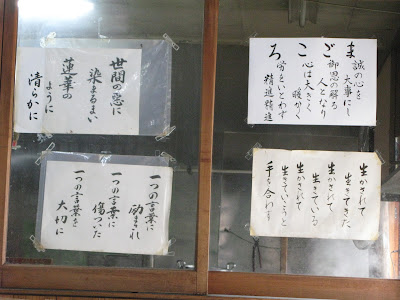 まごころ
誠の心を
大事にし
御恩の解る
人となり
心は大きく
暖かく
労をいとわず
精進精進
世間の悪に
染まるまい
蓮華の
ように
清らかに
生かされて
生きてきた
生かされて
生きている
生かされて
生きていこうと
手を合わす
一つの言葉に
励まされ
一つの言葉に
傷ついた
一つの言葉を
大切に